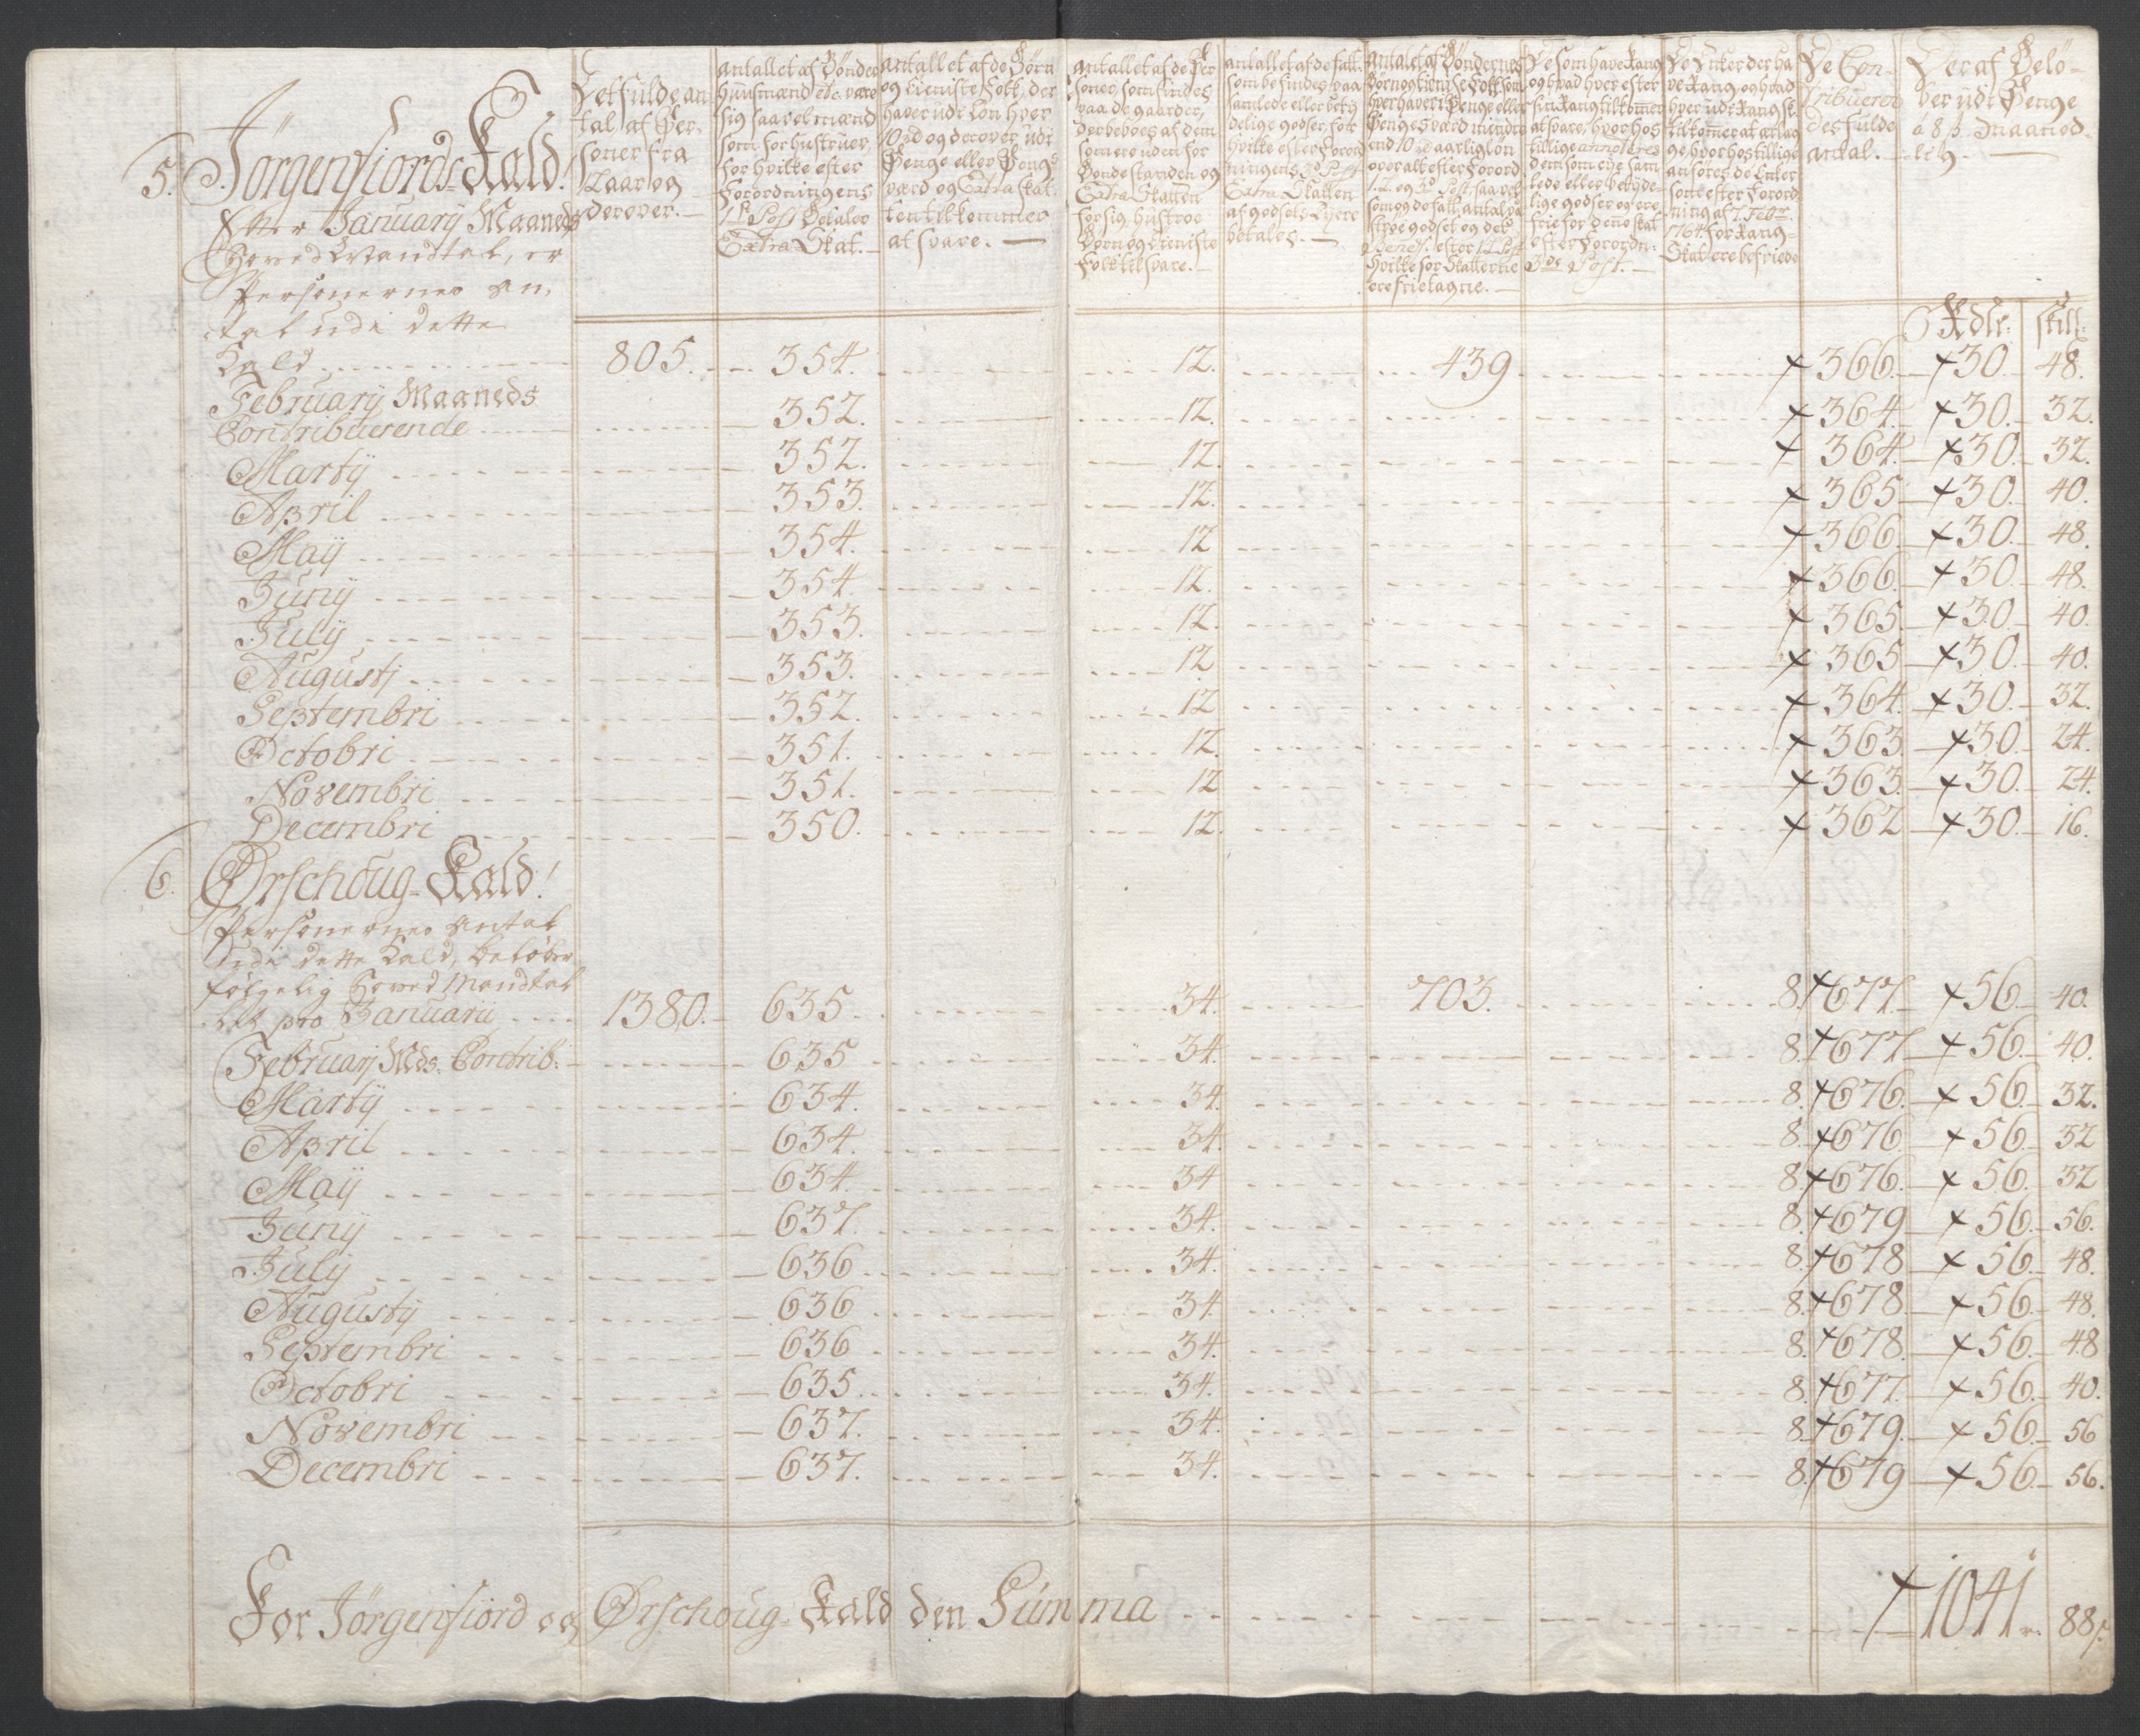 5. Jörgenfiords-Kald!
Efter January Maaneds
Hoved Mandtal, er
Personernes An-
tal udi dette
Kald
Det fulde an-
tal af Per-
soner fra
12 aar og
derover.
antallet af Bönder
Huusmænd etc. være
sig saavel mænd
som for hustruer,
for hvilke efter
Forordningens
1te Post betales
Extra Skat.
antallet af de Börn
og tieniste Folk, der
haver udi Lön hver
10 rd og derover udi
Penge eller Peng:
værd og Extra skat-
ten tilkommer
at svare.
antallet af de Per
soner, som findes
paa de gaarder,
der beboes af dem
som ere uden for
Bondestanden og
Extra Skatten
for sig, hustroe
Börn og tieniste
Folk til svare.
antallet af de fatt:
som befindes paa
samlede eller betÿ
delige godser, for
hvilke efter Forord
ningens 3de Post
Extra Skatten
af godsets Eyere
betales.
Antalet af Böndernes
Börn og tieniste Folk som
hver haver i Penge eller
Penges værd mindre
end 10 rd aarlig lön
overalt efter Forord
1te og 3de Post, saavel
som og de fatt: antal paa
ströe godset og det
efter 12te Post
hvilke for Skatterne
ere frietagne.
De som have Rang
og hvad hver efter
sin Rang tilkommer
at svare, hvorhos
tillige annoteres
dem som eÿe sam
lede eller betÿde-
lige godser og ere
frie for denne skat
efter Forordn:
3de Post.
De Enker der ha
ve Rang og hvad
hver udi Rang st.
tilkommer at erlæg
ge, hvorhos tillige
anföres de Enker
som efter Forord
ning af 7. Febr.
1764 for Rang-
Skat ere befriede
De Con-
tribueren
des fulde
antal.
Deraf Belö-
ber udi Penge
a 8 s. maaned-
lig.
Rdlr: skill:
805. 354. 12. 439 366. 30. 48.
February Maaneds
Contribuerende 352. 12. 364. 30. 32.
Martÿ 352. 12. 364. 30. 32.
April 353. 12. 365 30. 40.
Maÿ 354. 12 366. 30. 48.
Junÿ 354. 12. 366. 30. 48.
Julÿ 353. 12. 365. 30. 40.
Augustj 353. 12 365 30. 40.
Septembri 352. 12 364. 30. 32.
Octobri 351. 12. 363. 30. 24.
Novembri 351. 12 363. 30. 24.
Decembri 350. 12. 362 30. 16.
6. Ørschoug-Kald!
Personernes Antal
udi dette Kald, belöber
fölgelig Hoved Mandtal
let pro Januarii 1380. 635. 34. 703. 8. 677. 56. 40.
Februarj Mds. Contrib: 635 34. 8. 677 56. 40.
Martÿ 634. 34. 8. 676. 56. 32.
April 634. 34. 8. 676 56. 32
Maÿ 634. 34 8. 676. 56. 32
Junÿ 637. 34. 8. 679 56. 56.
Julÿ 636 34. 8. 678 56. 48.
Augustÿ 636 34 8. 678. 56. 48.
Septembri 636 34. 8. 678. 56. 48
Octobri 635. 34. 8. 677. 56. 40.
Novembri 637. 34. 8. 679. 56. 56
Decembri 637. 34. 8. 679 56. 56.
For Jörgenfiord og Ørschoug-Kald den Summa 1041 r. 88 s.